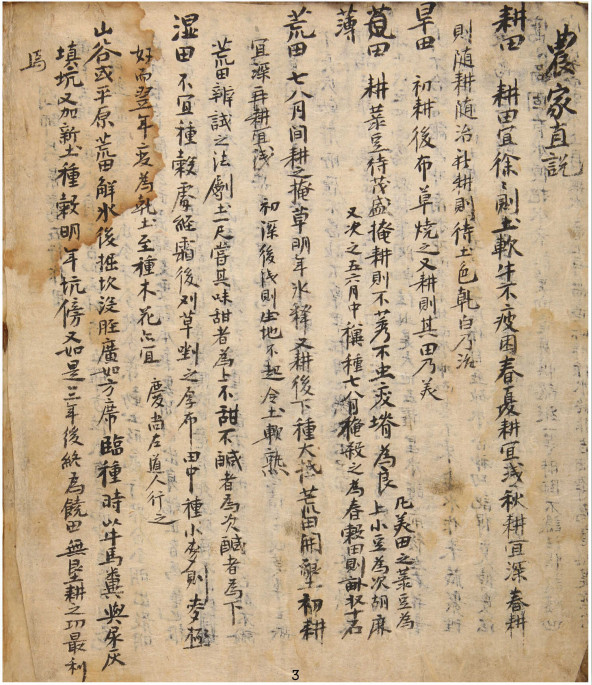 農家直說
耕田 耕田宜徐徐則土軟牛不疲困春夏耕宜淺秋耕宜深春耕
則隨耕隨治秋耕則待土色乾白乃治
旱田 初耕後布草燒之又耕則其田乃美
薄田 耕菉豆待茂盛掩耕則不莠不虫變塉為良 凡美田之菉豆為
上小豆為次胡麻
又次之五六月中穊種七八月掩殺之為春穀田則畝收十石
荒田 七八月間耕之掩草明年氷釋又耕後下種大抵荒田開墾初耕
宜深再耕宜淺 初深後淺則生地不起令土軟熟
荒田辨試之法劚土一尺嘗其味甜者為上不甜不醎者為次醎者為下
湿田 不宜種穀處經霜後刈草剉之厚布田中種小麥則麥極
好而翌年変為乾土至種木花亦宜 慶尚左道人行之
山谷或平原荒田解氷後掘坎深 廣如方席臨種時以牛馬糞與尿灰
填坑又加新土種穀明年坑傍又如是三年後終為饒田無墾耕之功最利
焉
3